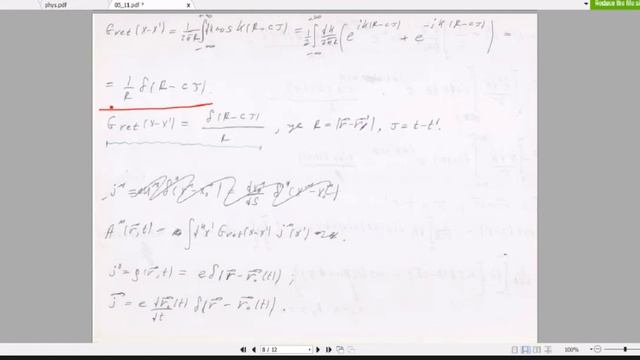 phys.pdf 05_11.pdf *
Reduce the file si
G_ret(x-x') = 1/(2πR) ∫_{-∞}^{+∞} dk cos k(R-cJ) = 1/2 ∫_{-∞}^{+∞} dk/(2πR) (e^{ik(R-cJ)} + e^{-ik(R-cJ)}) =
= 1/R δ(R-cJ).
G_ret(x-x') = δ(R-cJ)/R , де R=|r⃗-r⃗'|, J=t-t'.
A^μ(r⃗,t) = ∫d⁴x' G_ret(x-x') j^μ(x')
j⁰=ρ(r⃗,t) = eδ(r⃗-r⃗₀(t)) ;
j⃗ = e dr⃗₀(t)/dt δ(r⃗-r⃗₀(t)).
8 / 12
100%